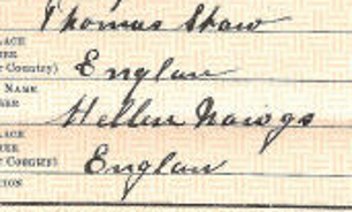 Thomas Shaw
LACE
r Country)
Englan
Name
Hellen Nawgs
LACE
r Country)
Englan
ION